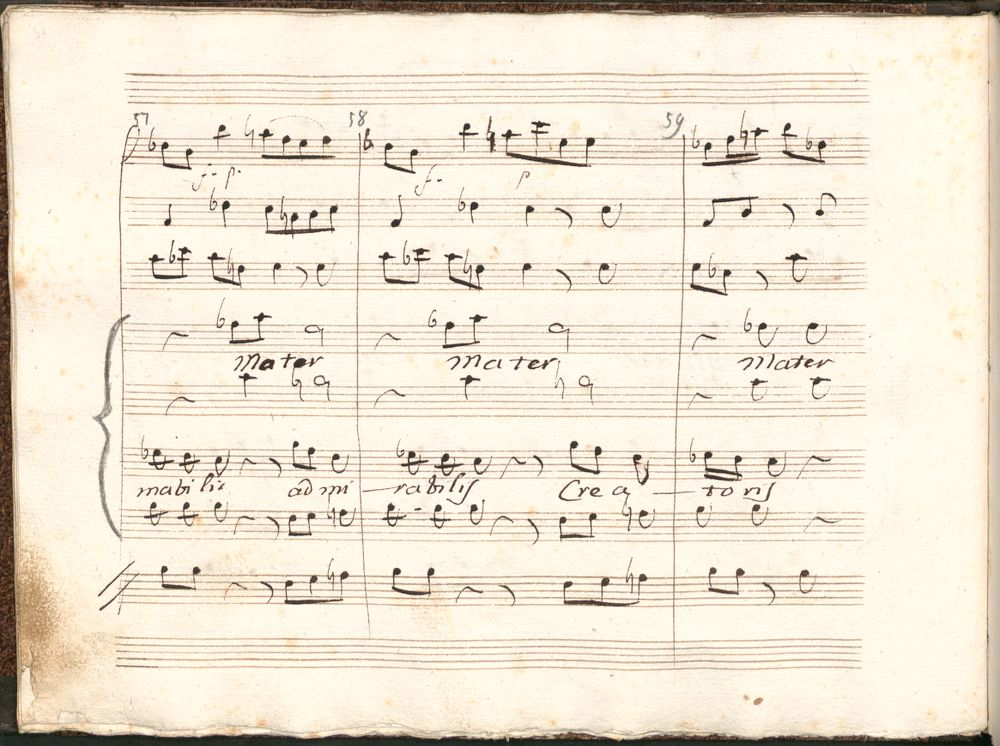 57 58 59
f. p. f. p
Mater Mater Mater
mabilis admi - rabilis Crea - toris